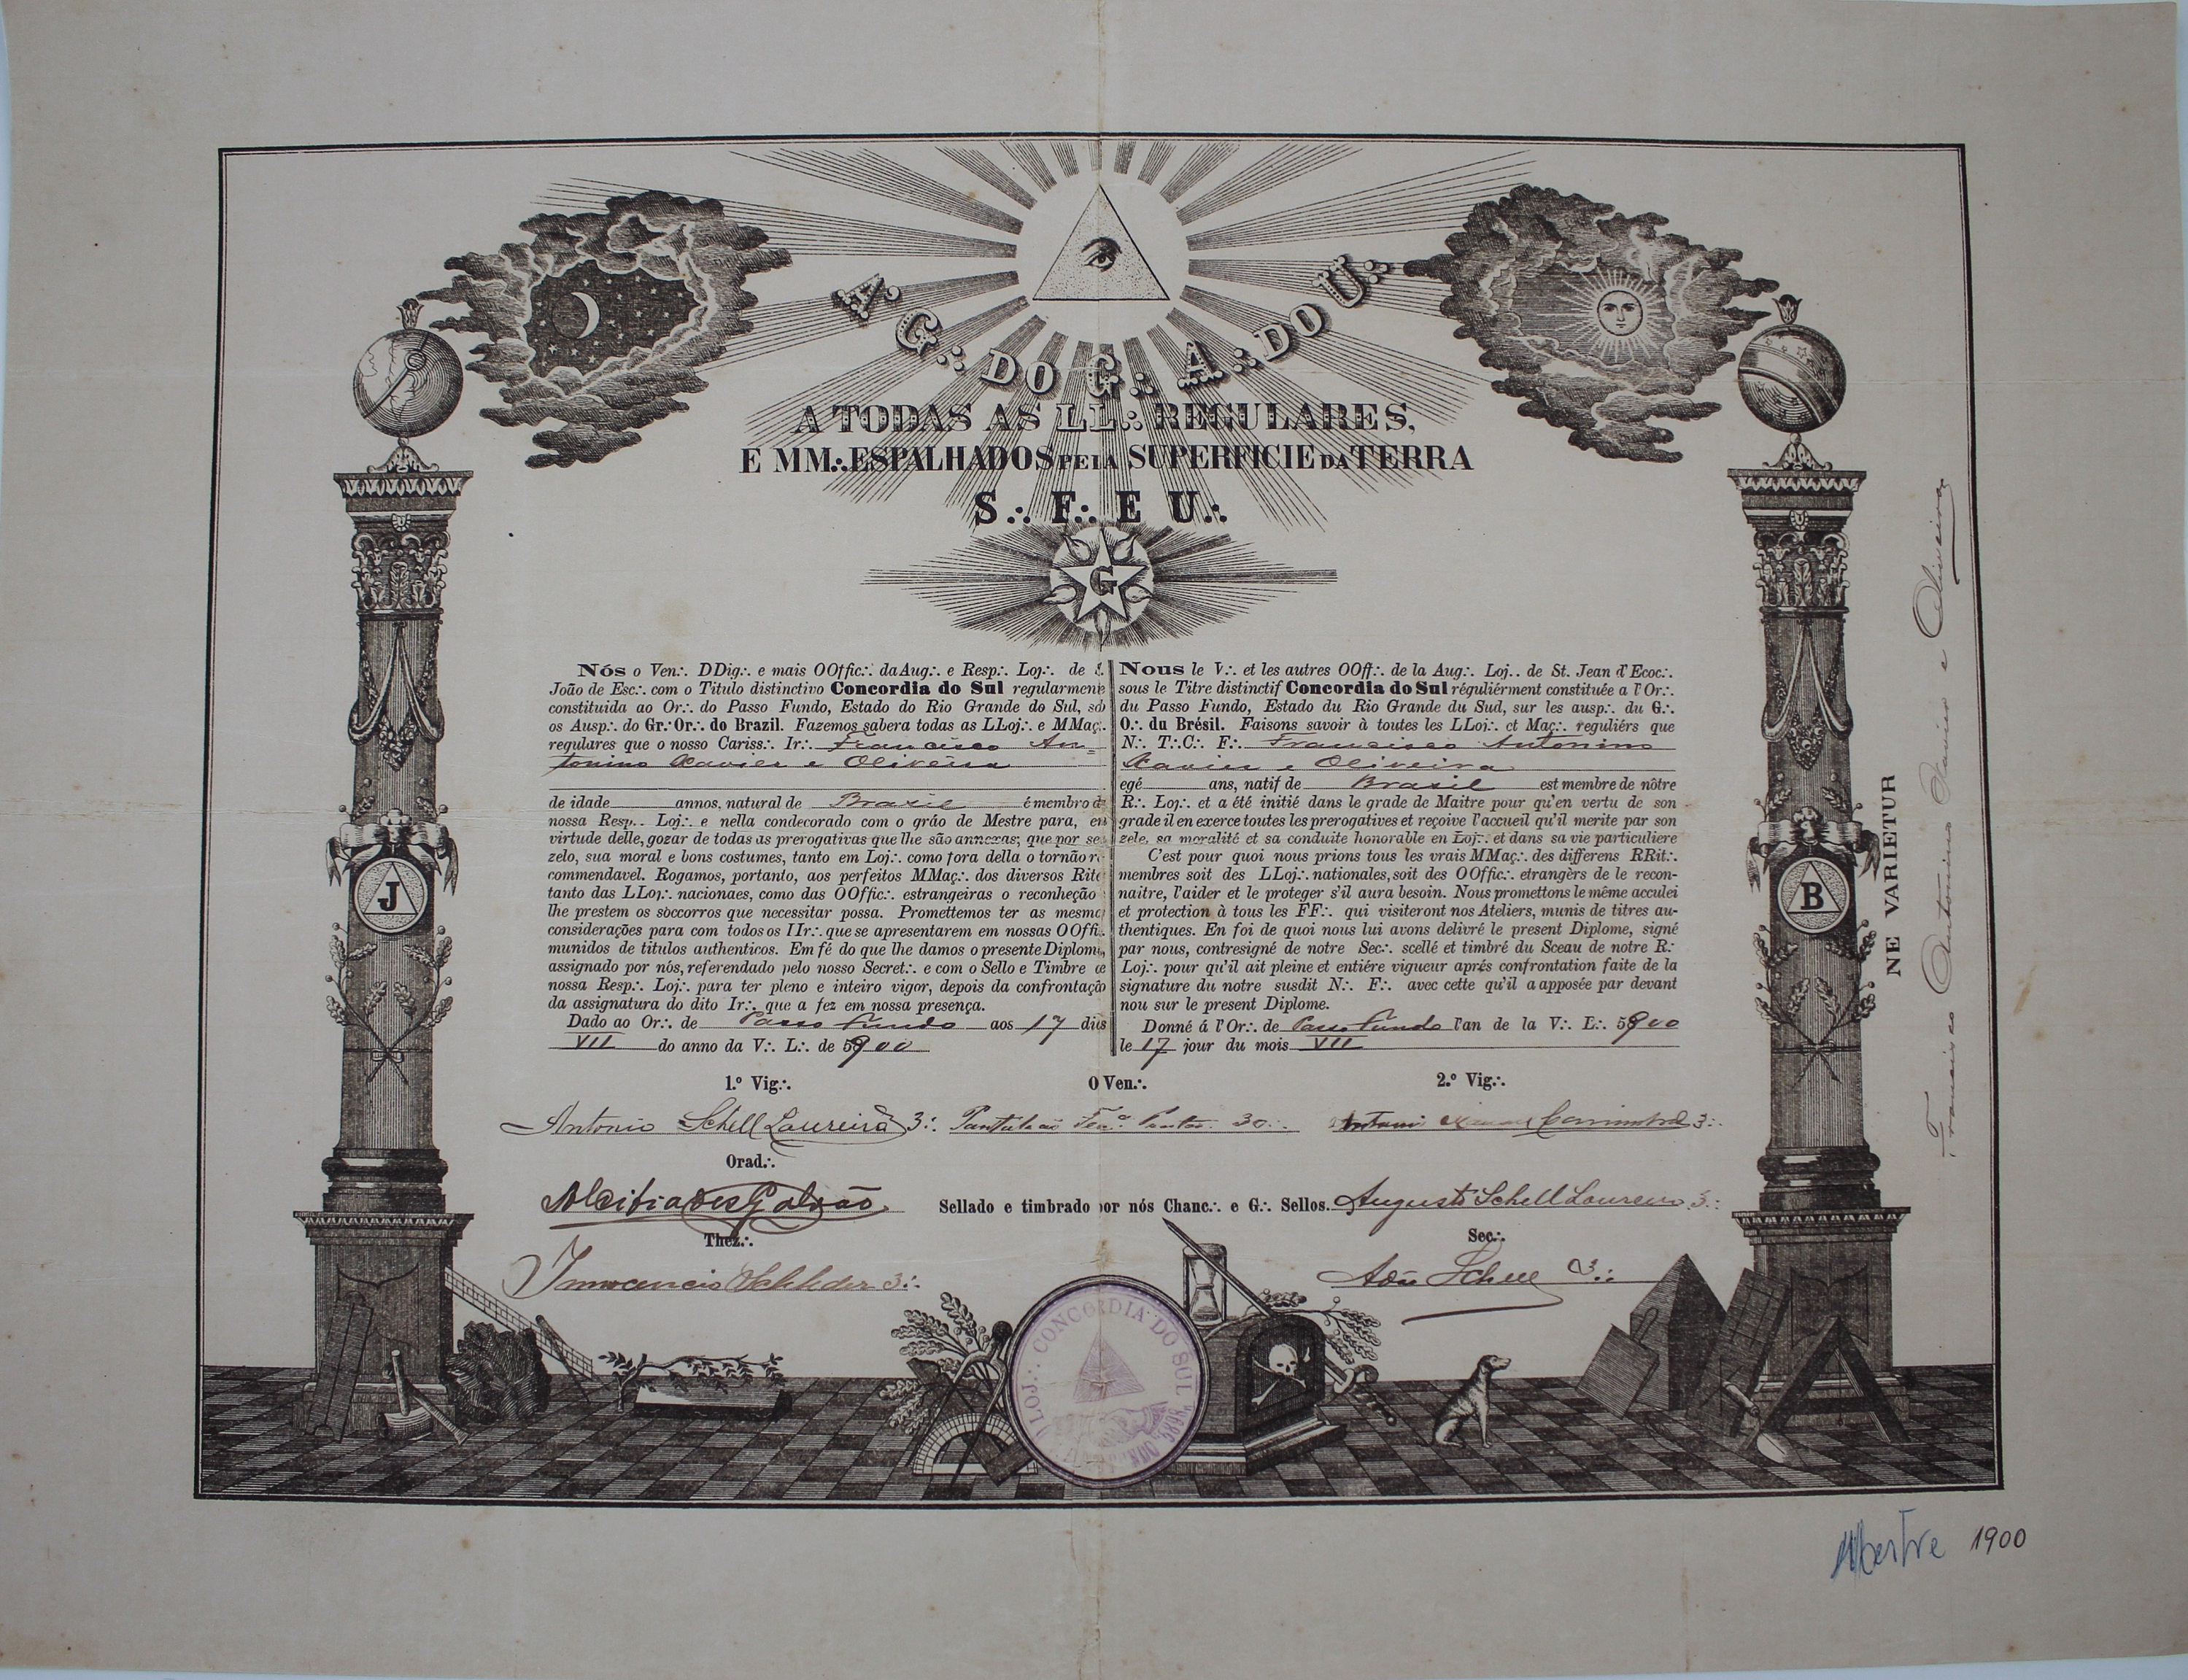 A.·. G.·. DO G.·. A.·. DO U.·.
A TODAS AS LL.·. REGULARES,
E MM.·. ESPALHADOS PELA SUPERFICIE DA TERRA
S.·. F.·. E U.·.
G
Nós o Ven.·. DDig.·. e mais OOffic.·. da Aug.·. e Resp.·. Loj.·. de S.
João de Esc.·. com o Titulo distinctivo Concordia do Sul regularmente
constituida ao Or.·. do Passo Fundo, Estado do Rio Grande do Sul, sob
os Ausp.·. do Gr.·. Or.·. do Brazil. Fazemos saber a todas as LLoj.·. e MMaç.·.
regulares que o nosso Cariss.·. Ir.·. Francisco An=
tonino Xavier e Oliveira
de idade annos, natural de Brazil é membro de
nossa Resp.. Loj.·. e nella condecorado com o gráo de Mestre para, em
virtude delle, gozar de todas as prerogativas que lhe são annexas; que por seu
zelo, sua moral e bons costumes, tanto em Loj.·. como fora della o tornão re
commendavel. Rogamos, portanto, aos perfeitos MMaç.·. dos diversos Rito
tanto das LLoj.·. nacionaes, como das OOffic.·. estrangeiras o reconheção
lhe prestem os soccorros que necessitar possa. Promettemos ter as mesma
considerações para com todos os IIr.·. que se apresentarem em nossas OOffi.
munidos de titulos authenticos. Em fé do que lhe damos o presente Diploma,
assignado por nós, referendado pelo nosso Secret.·. e com o Sello e Timbre de
nossa Resp.·. Loj.·. para ter pleno e inteiro vigor, depois da confrontação
da assignatura do dito Ir.·. que a fez em nossa presença.
Dado ao Or.·. de Passo Fundo aos 17 dias
VII do anno da V.·. L.·. de 5900
Nous le V.·. et les autres OOff.·. de la Aug.·. Loj.. de St. Jean d'Ecoc.·.
sous le Titre distinctif Concordia do Sul réguliérment constituée a l'Or.·.
du Passo Fundo, Estado du Rio Grande du Sud, sur les ausp.·. du G.·.
O.·. du Brésil. Faisons savoir à toutes les LLoj.·. et Maç.·. reguliérs que
N.·. T.·.C.·. F.·. Francisco Antonino
Xavier e Oliveira
egé ans, natif de Brazil est membre de nôtre
R.·. Loj.·. et a été initié dans le grade de Maitre pour qu'en vertu de son
grade il en exerce toutes les prerogatives et reçoive l'accueil qu'il merite par son
zele, sa moralité et sa conduite honorable en Loj.·. et dans sa vie particuliere
C'est pour quoi nous prions tous les vrais MMaç.·. des differens RRit.·.
membres soit des LLoj.·. nationales, soit des OOffic.·. etrangèrs de le recon-
naitre, l'aider et le proteger s'il aura besoin. Nous promettons le même acculei
et protection à tous les FF.·. qui visiteront nos Ateliers, munis de titres au-
thentiques. En foi de quoi nous lui avons delivré le present Diplome, signé
par nous, contresigné de notre Sec.·. scellé et timbré du Sceau de notre R.·.
Loj.·. pour qu'il ait pleine et entiére vigueur aprés confrontation faite de la
signature du notre susdit N.·. F.·. avec cette qu'il a apposée par devant
nou sur le present Diplome.
Donné á l'Or.·. de Passo Fundo l'an de la V.·. L.·. 5900
le 17 jour du mois VII
J
B
NE VARIETUR
Francisco Antonino Xavier e Oliveira
1.º Vig.·. O Ven.·. 2.º Vig.·.
Antonio Schell Loureiro 3.·. 30.·. 3.·.
Orad.·.
Alcibiades Galvão Sellado e timbrado por nós Chanc.·. e G.·. Sellos. Augusto Schell Loureiro 3.·.
Thez.·. Sec.·.
Innocencio Schleder 3.·. Adão Schell 3.·.
LOJ.·. CONCORDIA DO SUL
Mestre 1900